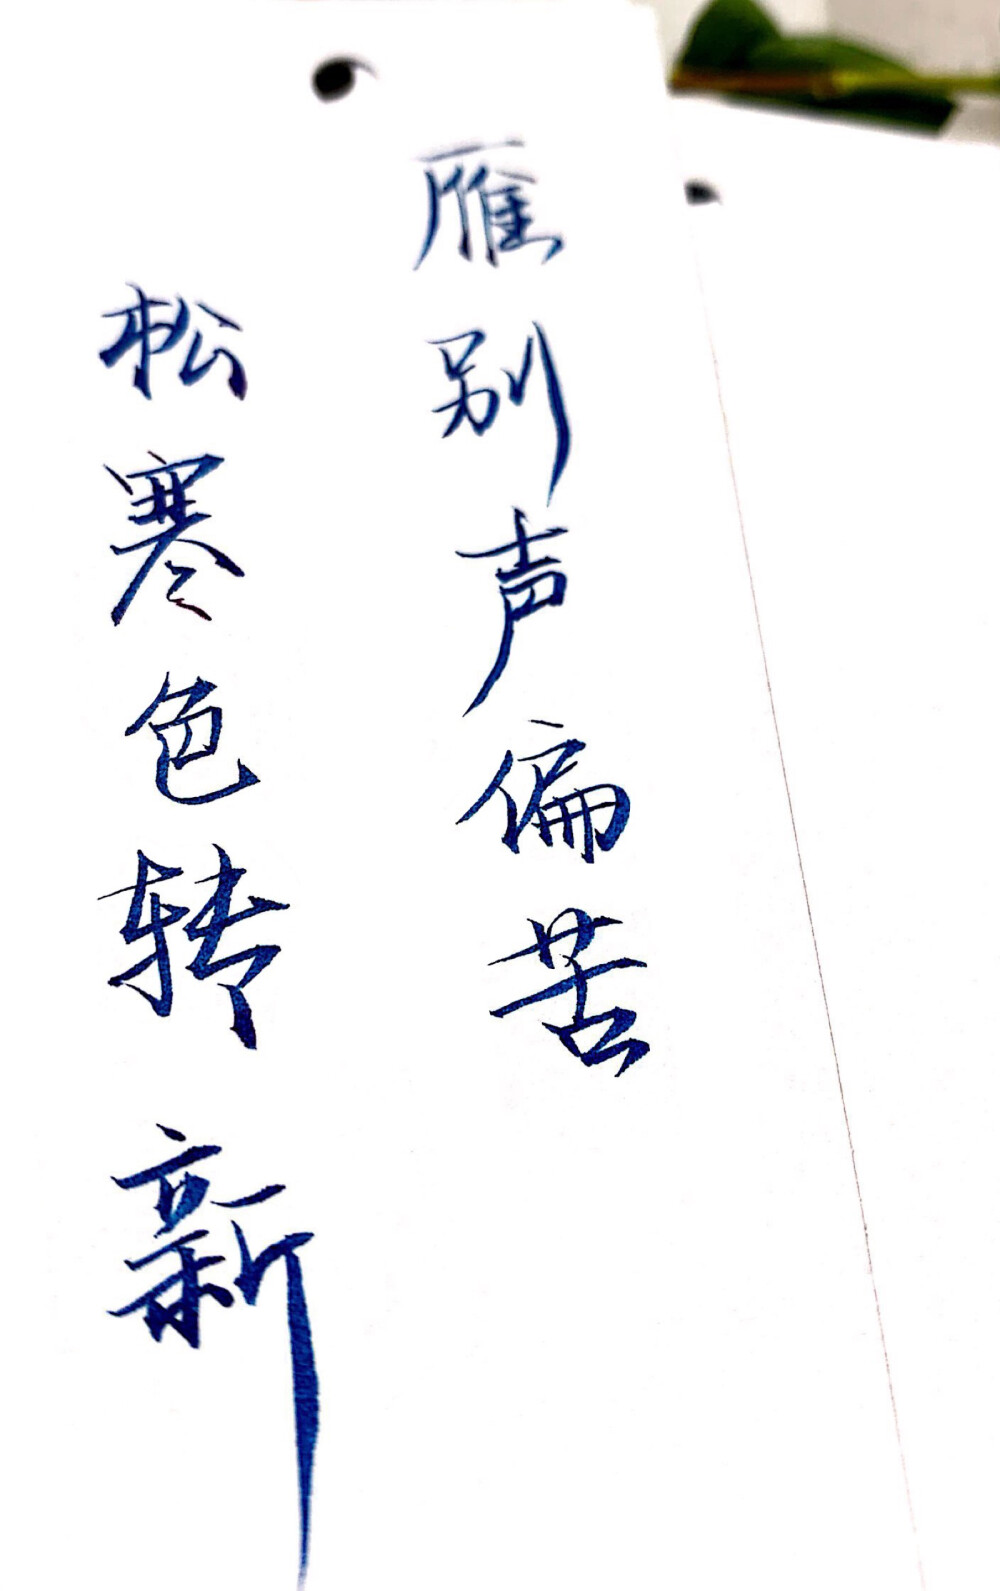 雁别声偏苦
松寒色转新